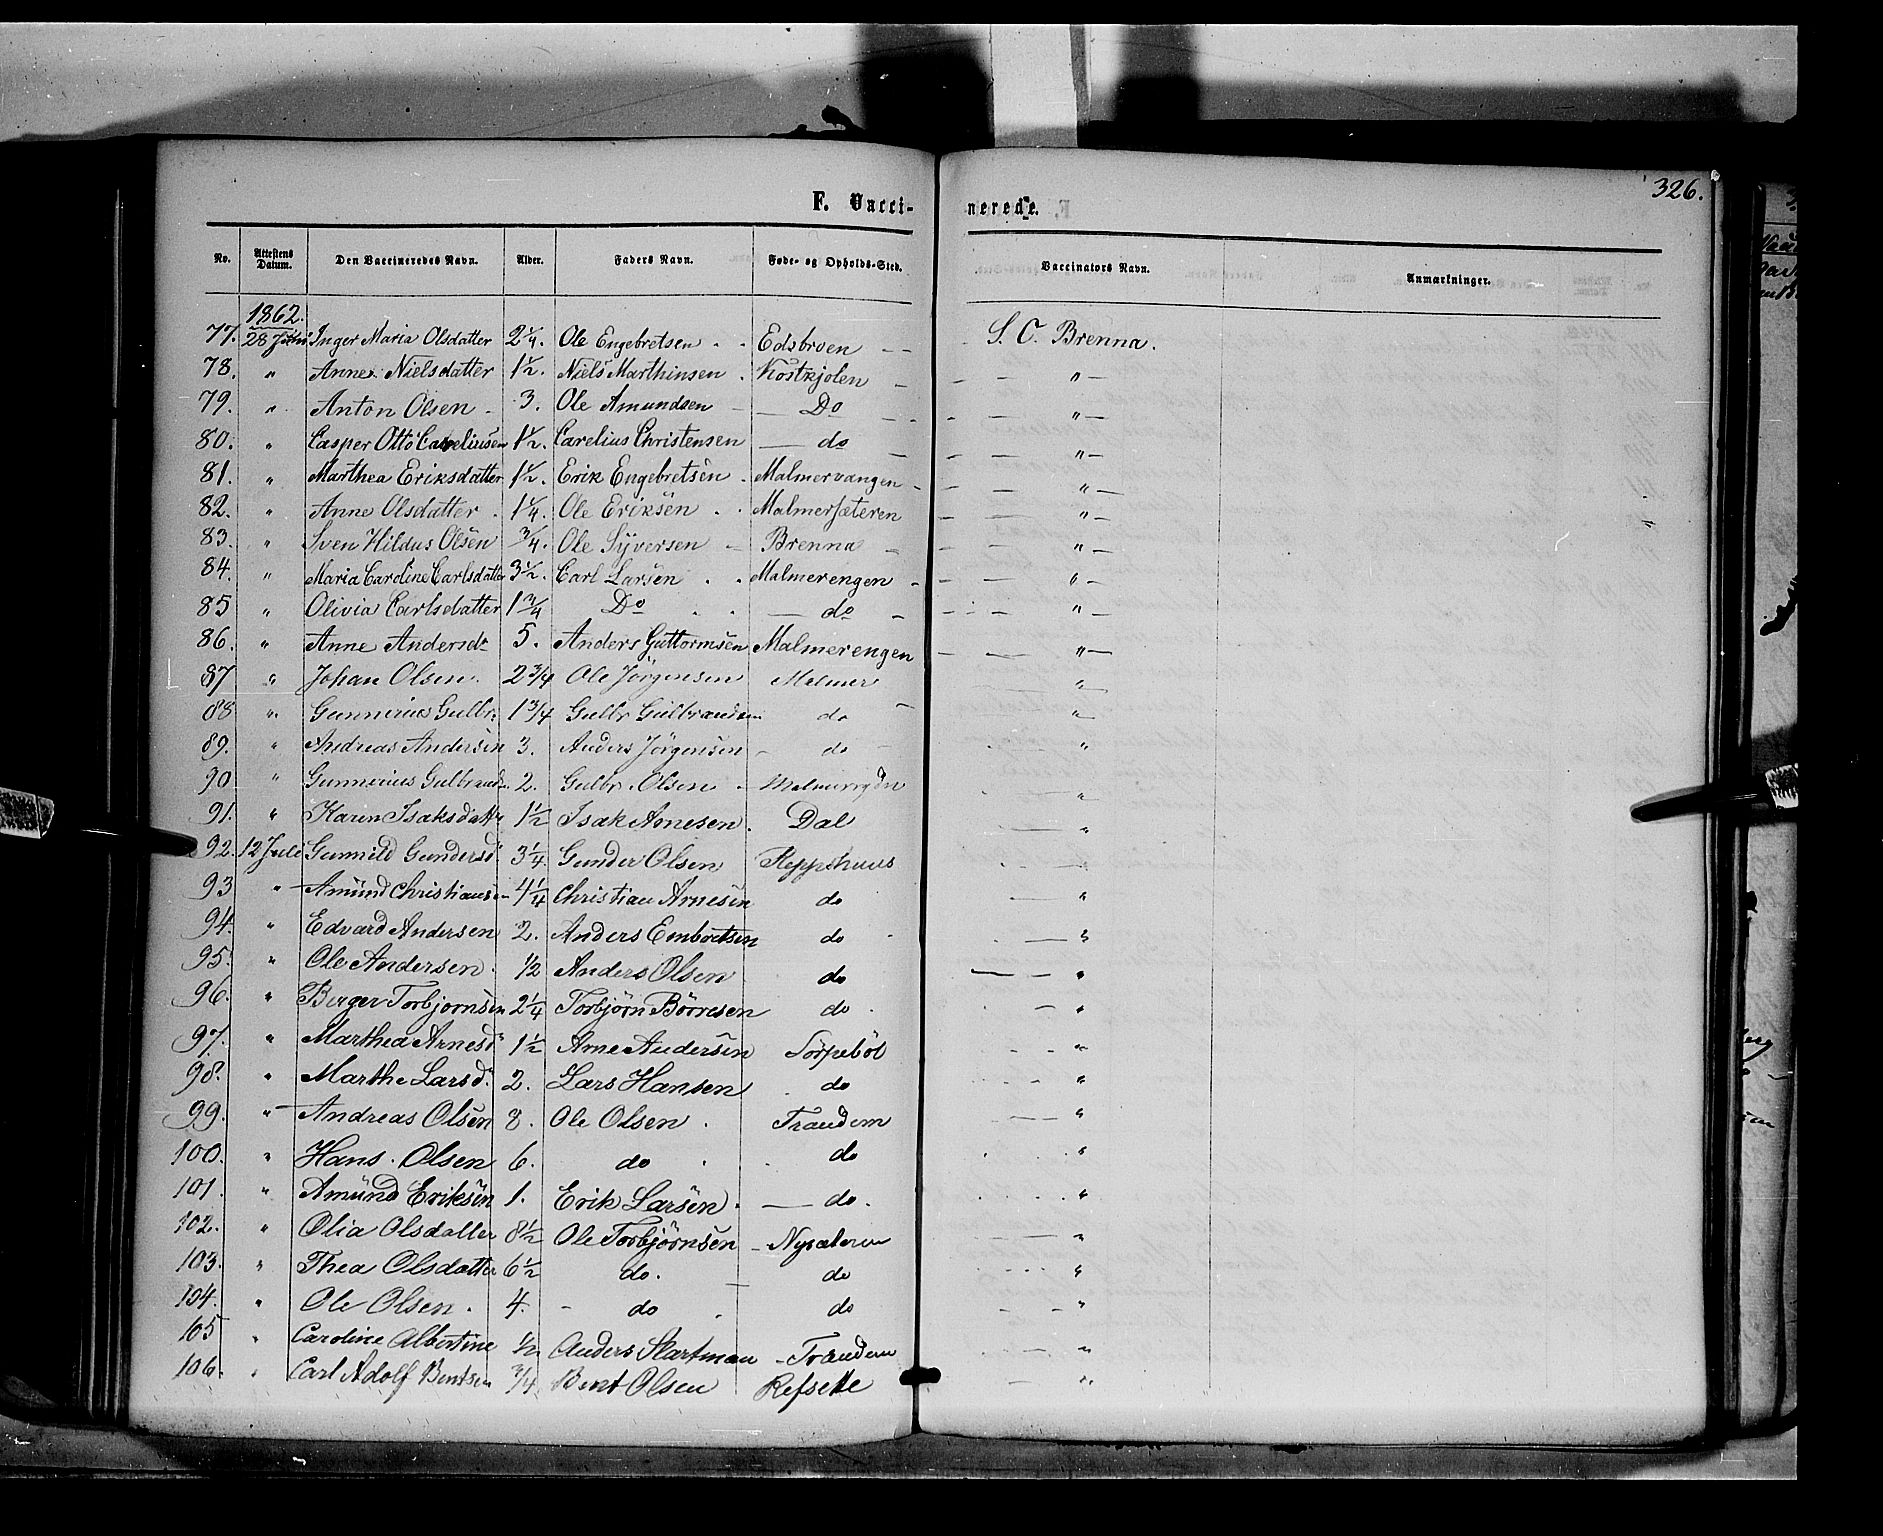 326.
F. Vaccinerede.
No. Attestens Datum. Den Vaccineredes Navn. Alder. Faders Navn. Føde- og Opholds-Sted. Vaccinators Navn. Anmærkninger.
1862.
77. 28 Juni Inger Maria Olsdatter 2 1/4. Ole Engebretsen Edsbroen S. O. Brenna.
78. " Anne Nielsdatter 1 1/2. Niels Marthinsen Kostkjolen "
79. " Anton Olsen 3. Ole Amundsen Do "
80. " Casper Otto Careliusen 1 1/2. Carelius Christensen do "
81. " Marthea Eriksdatter 1 1/2. Erik Engebretsen Malmervangen "
82. " Anne Olsdatter 1 1/4. Ole Eriksen Malmersæteren "
83. " Sven Hildus Olsen 3/4. Ole Syversen Brenna "
84. " Maria Caroline Carlsdatter 3 1/2. Carl Larsen Malmerengen "
85 " Olivia Carlsdatter 1 3/4 Do do "
86. " Anne Andersdr 5. Anders Guttormsen Malmerengen "
87 " Johan Olsen. 2 3/4 Ole Jörgensen Malmer "
88 " Gunnerius Gulbr. 1 3/4 Gulbr Gulbrandsen do "
89. " Andreas Andersen 3. Anders Jörgensen do "
90 " Gunnerius Gulbrands. 2. Gulbr. Olsen "
91. " Karen Isaksdattr 1 1/2 Isak Arnesen. Dal "
92. 12 Juli Gunnild Gundersd 3 1/4 Gunder Olsen Kepphuus
93 " Amund Christiansen 4 1/4 Christian Arnesen do "
94. " Edvard Andersen 2. Anders Embretsen do "
95. " Ole Andersen. 1/2 Anders Olsen do "
96. " Berger Torbjornsen 2 1/4 Torbjörn Börresen do "
97. " Marthea Arnesd 1 1/2 Arne Andersen Sörpeböl "
98. " Marthe Larsd. 2. Lars Hansen do "
99. " Andreas Olsen 8. Ole Olsen Trandem "
100. " Hans. Olsen 6. do do "
101. " Amund Eriksen 1. Erik Larsen. do. "
102. " Olia Olsdatter 8 1/2 Ole Torbjörnsen Nysæteren "
103. " Thea Olsdatter 6 1/2 do. do "
104. " Ole Olsen. 4. do do "
105 " Caroline Albertine 1/2 Anders Slartman Trandem "
106. " Carl Adolf Bentsen 3/4 Bent Olsen Refsette "